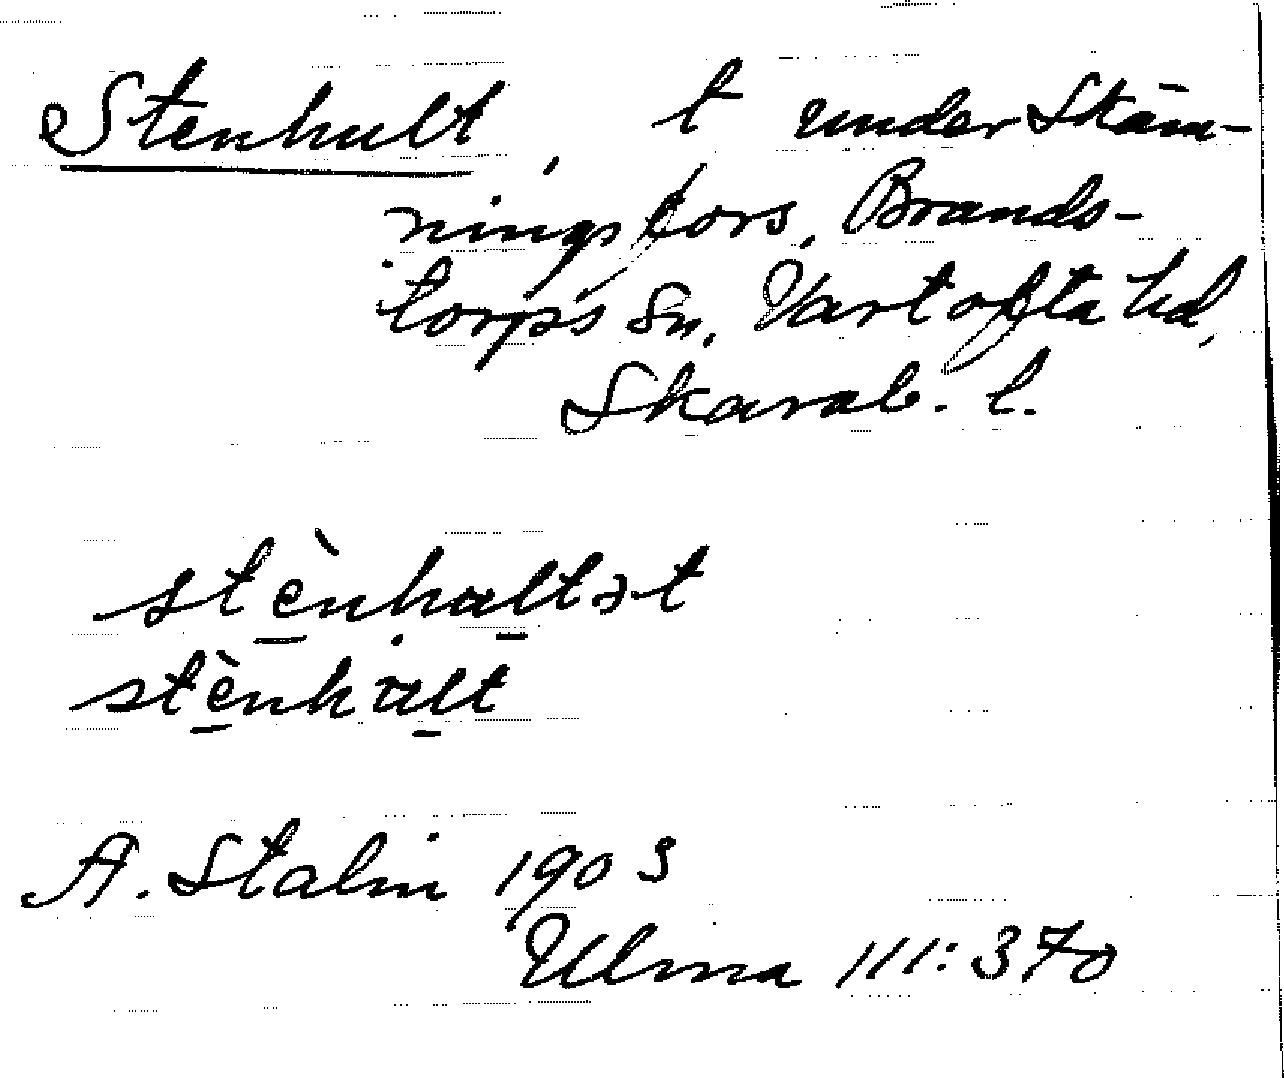 Stenhult, t under Skäm-
ningsfors, Brands-
torps sn, Vartofta hd,
Skarab. l.
stènhaltət
stènhalt
A. Stalin 1903
Ulma 111:370